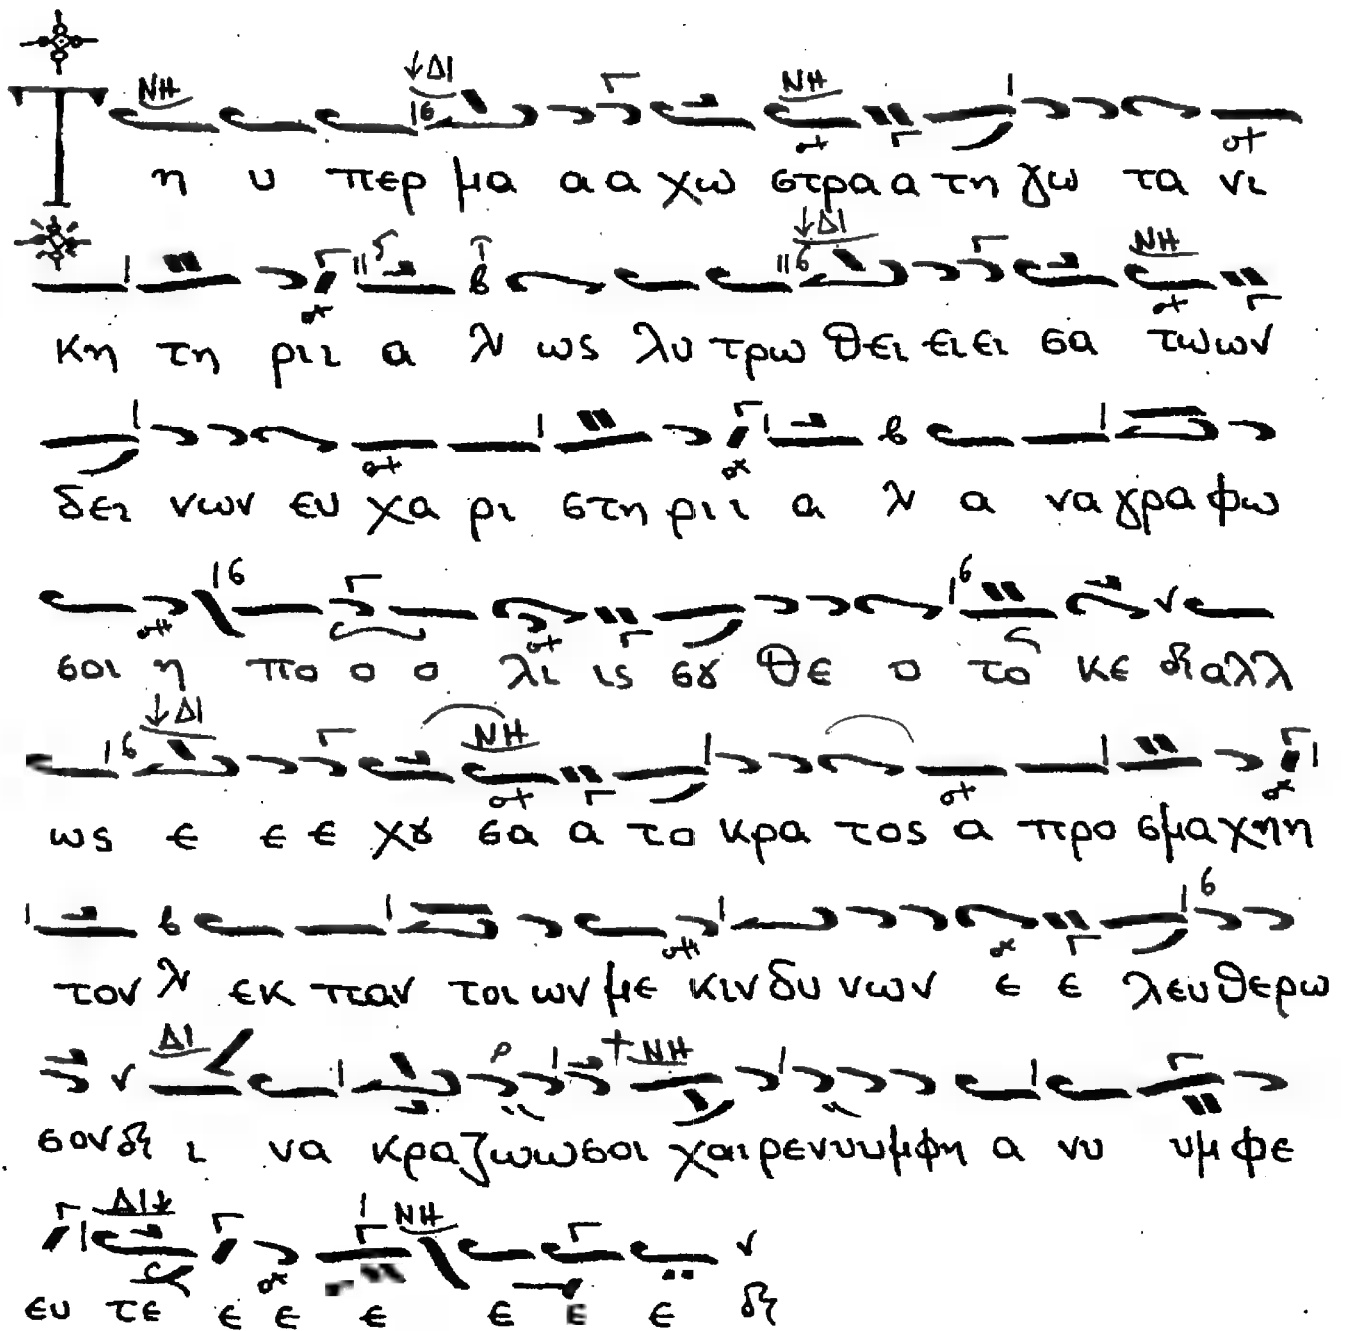 ΝΗ ↓ΔΙ ΝΗ
Τη υ περ μα α α χω στρα α τη γω τα νι
↓ΔΙ ΝΗ
κη τη ρι ι α λν ως λυ τρω θει ει ει σα τω ων
δει νων ευ χα ρι στη ρι ι α λν α να γρα φω
σοι η πο ο ο λι ις σȣ Θε ο το κε δι αλλ
↓ΔΙ ΝΗ
ως ε ε ε χȣ σα α το κρα τος α προ σμα χη η
τον λν εκ παν τοι ων με κιν δυ νων ε ε λευ θε ρω
ΔΙ ΝΗ
σον δι ι να κρα ζω ω σοι χαι ρε νυ υ μφη α νυ υμ φε
ΔΙ↓ ΝΗ
ευ τε ε ε ε ε ε ε δι